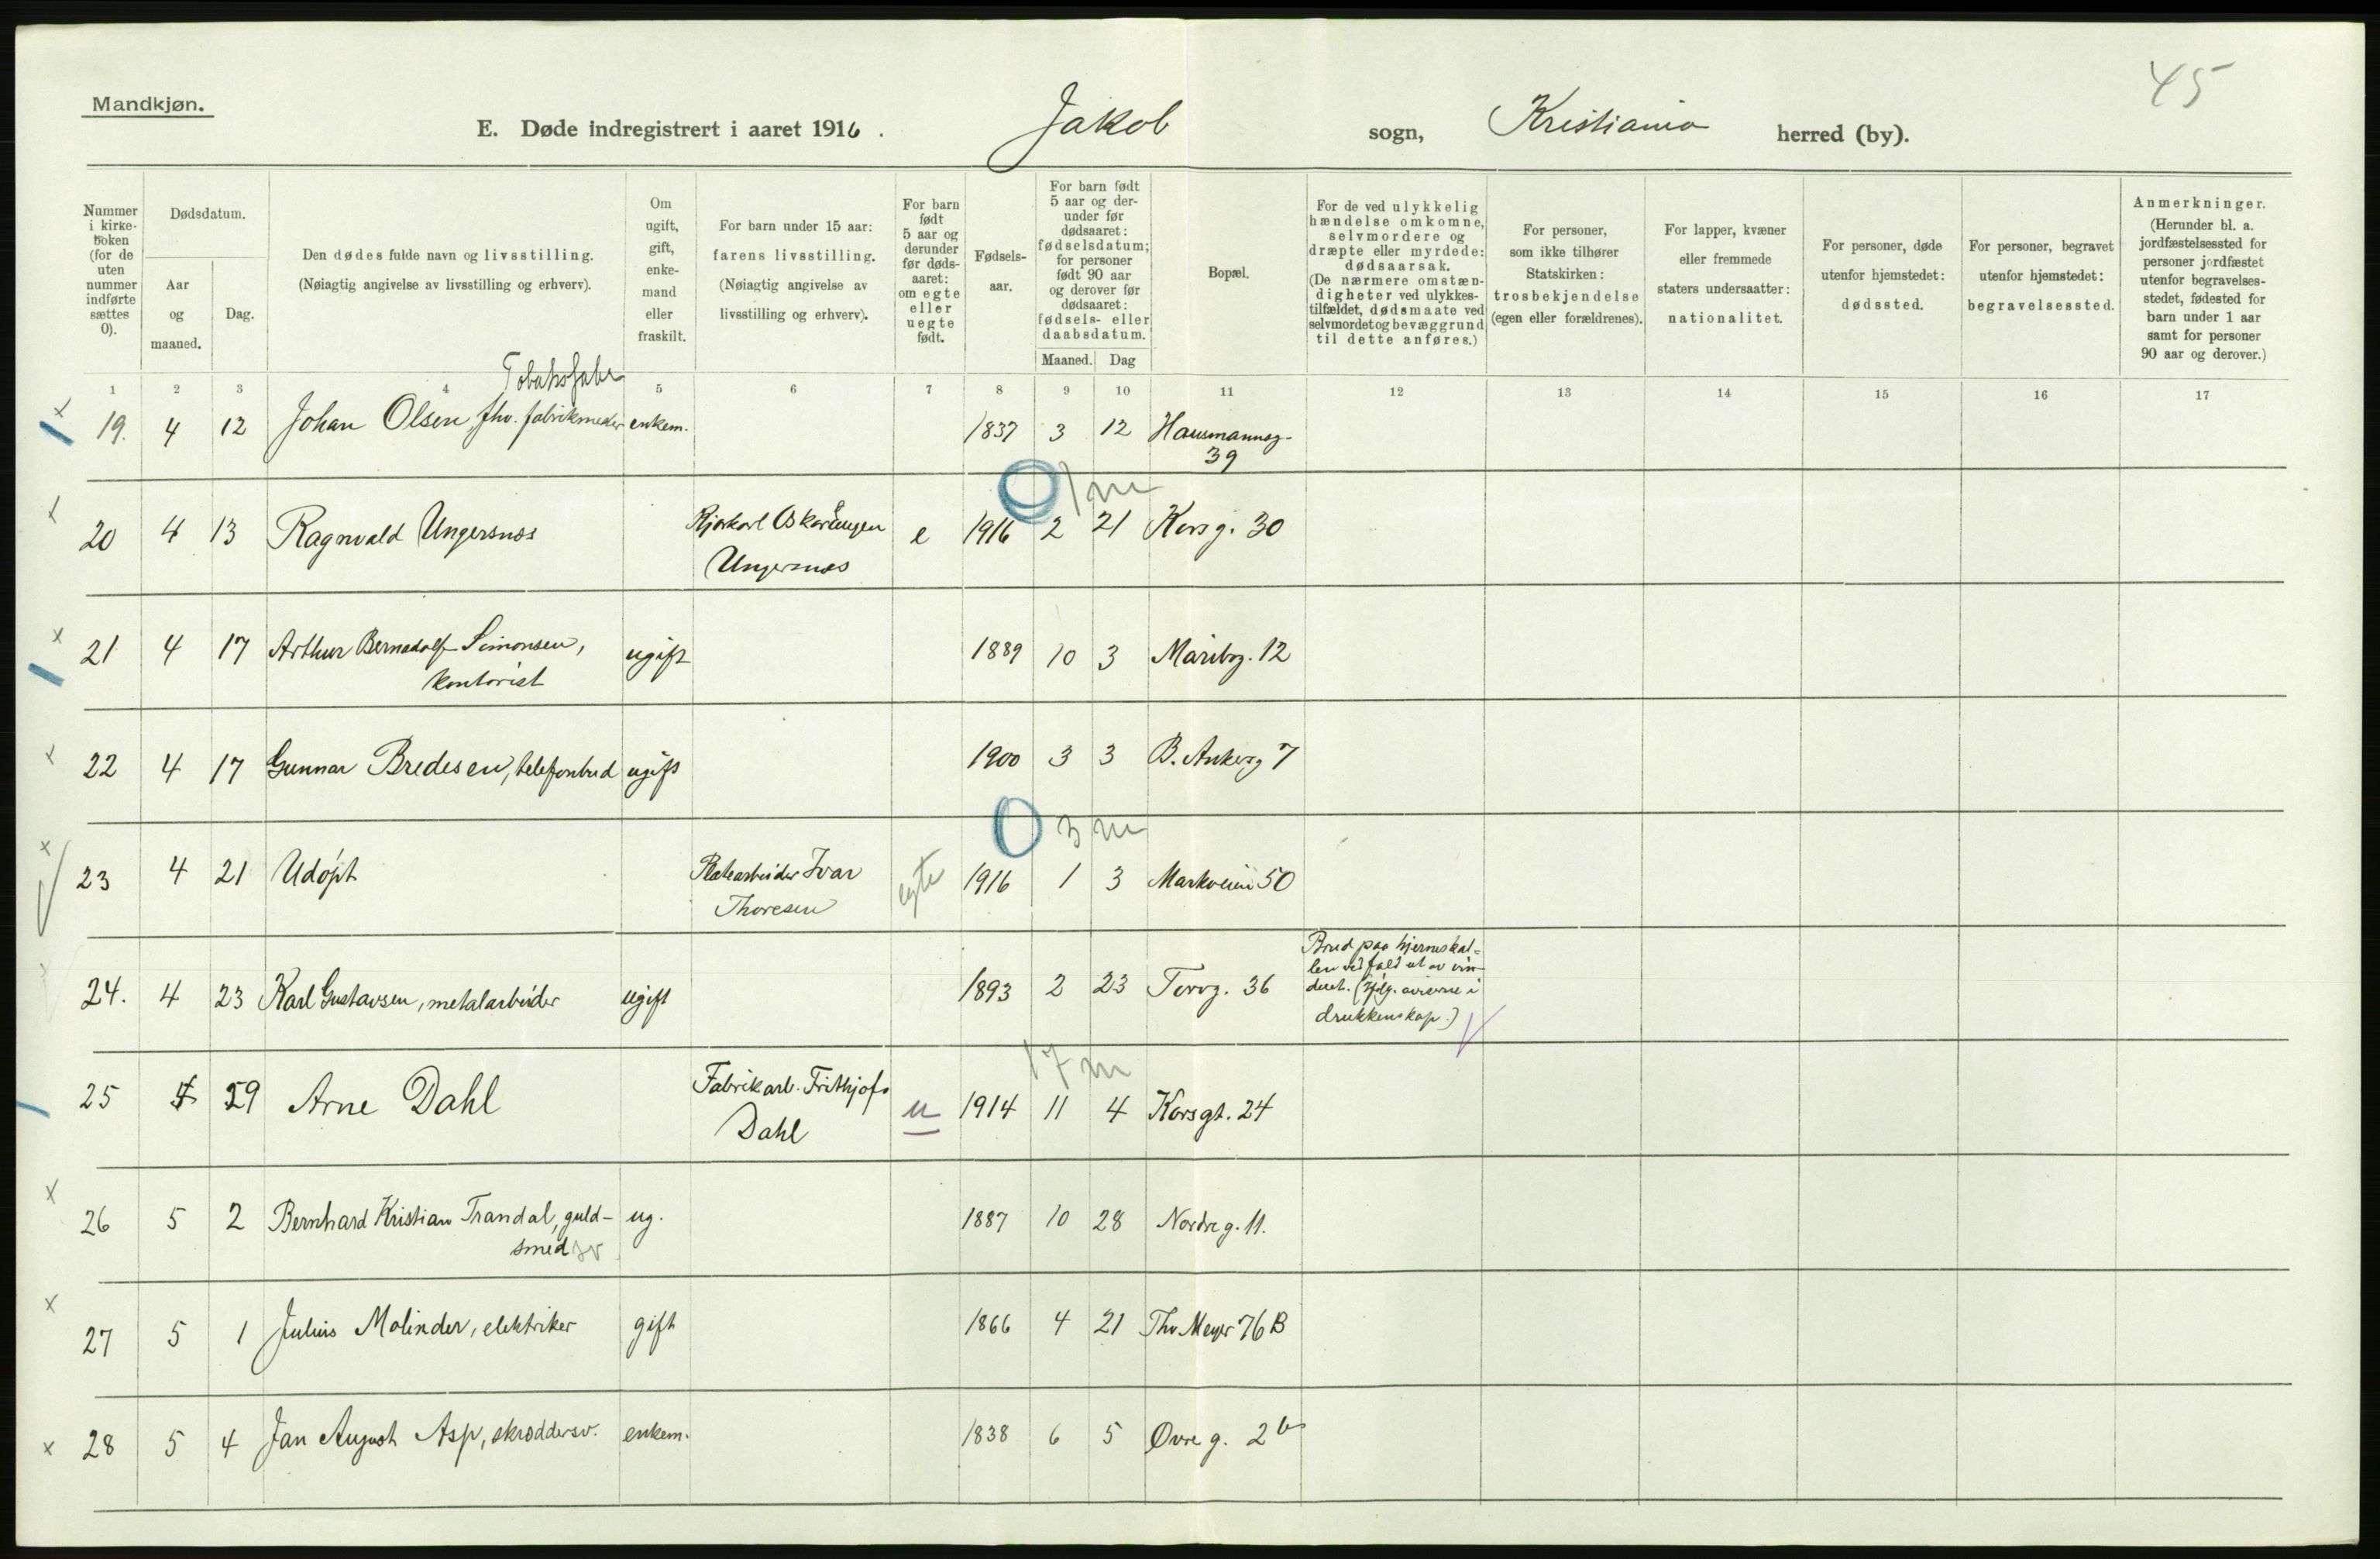 45
Mandkjøn.
E. Døde indregistrert i aaret 1916. Jakob sogn, Kristiania herred (by).
Nummer i kirke-boken (for de uten nummer indførte sættes 0).
Dødsdatum.
Aar og maaned.
Dag.
Den dødes fulde navn og livsstilling. (Nøiagtig angivelse av livsstilling og erhverv).
Om ugift, gift, enke-mand eller fraskilt.
For barn under 15 aar: farens livsstilling. (Nøiagtig angivelse av livsstilling og erhverv).
For barn født 5 aar og derunder før døds-aaret: om egte eller uegte født.
Fødsels-aar.
For barn født 5 aar og der-under før dødsaaret: fødselsdatum; for personer født 90 aar og derover før dødsaaret: fødsels- eller daabsdatum.
Maaned.
Dag
Bopæl.
For de ved ulykkelig hændelse omkomne, selvmordere og dræpte eller myrdede: dødsaarsak. (De nærmere omstæn-digheter ved ulykkes-tilfældet, dødsmaate ved selvmordet og bevæggrund til dette anføres.)
For personer, som ikke tilhører Statskirken: trosbekjendelse (egen eller forældrenes).
For lapper, kvæner eller fremmede staters undersaatter: nationalitet.
For personer, døde utenfor hjemstedet: dødssted.
For personer, begravet utenfor hjemstedet: begravelsessted.
Anmerkninger. (Herunder bl. a. jordfæstelsessted for personer jordfæstet utenfor begravelses-stedet, fødested for barn under 1 aar samt for personer 90 aar og derover.)
1 2 3 4 5 6 7 8 9 10 11 12 13 14 15 16 17
Tobaksfabr
19. 4 12 Johan Olsen, fhv. fabrikmester enkem. 1837 3 12 Hausmannsg.
39
0 1 m
20 4 13 Ragnvald Ungersnæs Kjørkarl Oskar Eugen e 1916 2 21 Korsg. 30
Ungersnæs
21 4 17 Arthur Bernadolf Simonsen, ugift 1889 10 3 Maribog. 12
kontorist
22 4 17 Gunnar Bredesen, telefonbud ugift 1900 3 3 B. Ankersg 7
0 3 m
23 4 21 Udøpt Platearbeider Ivar egte 1916 1 3 Markveien 50
Thoresen
24. 4 23 Karl Gustavsen, metalarbeider ugift 1893 2 23 Torvg. 36 Brud paa hjerneskal-
len ved fald ut av vin-
duet. (Ifølg. aviserne i
drukkenskap.)
17 m
25 4 29 Arne Dahl Fabrikarb. Frithjof u 1914 11 4 Korsgt. 24
Dahl
26 5 2 Bernhard Kristian Trandal, guld- ug. 1887 10 28 Nordreg. 11.
smed sv
27 5 1 Julius Molinder, elektriker gift 1866 4 21 Thv Meyer 76 B
28 5 4 Jan August Asp, skræddersv. enkem. 1838 6 5 Øvre g. 2 b